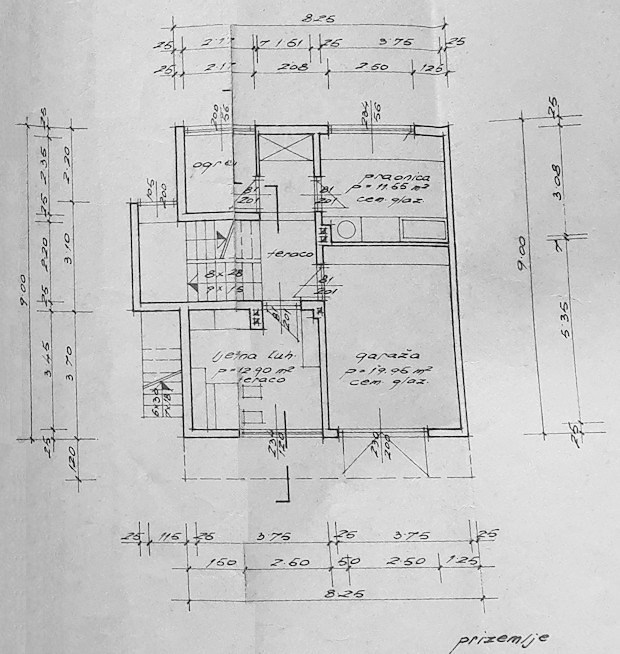 8.25
25 2.17 7 1.51 25 3.75 25
25 2.17 208 2.60 1.25
200
56
234
56
ogrev
praonica
p = 11.65 m²
cem. glaz.
81
201
81
201
105
200
teraco
8 x 28
9 x 18
81
201
81
201
ljetna kuh.
p = 12.90 m²
teraco
garaža
p = 19.95 m²
cem. glaz.
234
120
230
200
9.00
25 2.35 25 2.20 25 3.45 25
2.20 3.10 3.70 120
9.00
25 3.08 7 5.35 25
25 115 25 3.75 25 3.75 25
150 2.60 50 2.50 1.25
8.25
prizemlje